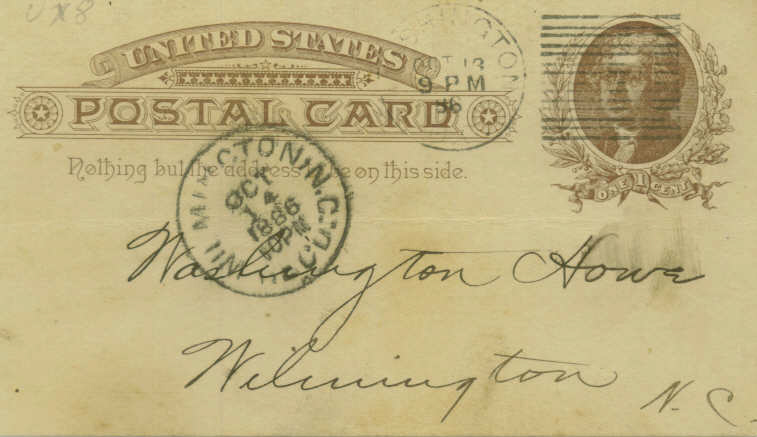 UX8
UNITED STATES
POSTAL CARD
Nothing but the address on this side.
WASHINGTON
13
9 PM
86
ONE 1 CENT
WILMINGTON, N.C.
OCT
14
1886
10PM
REC'D.
Washington Howe
Wilmington N.C.